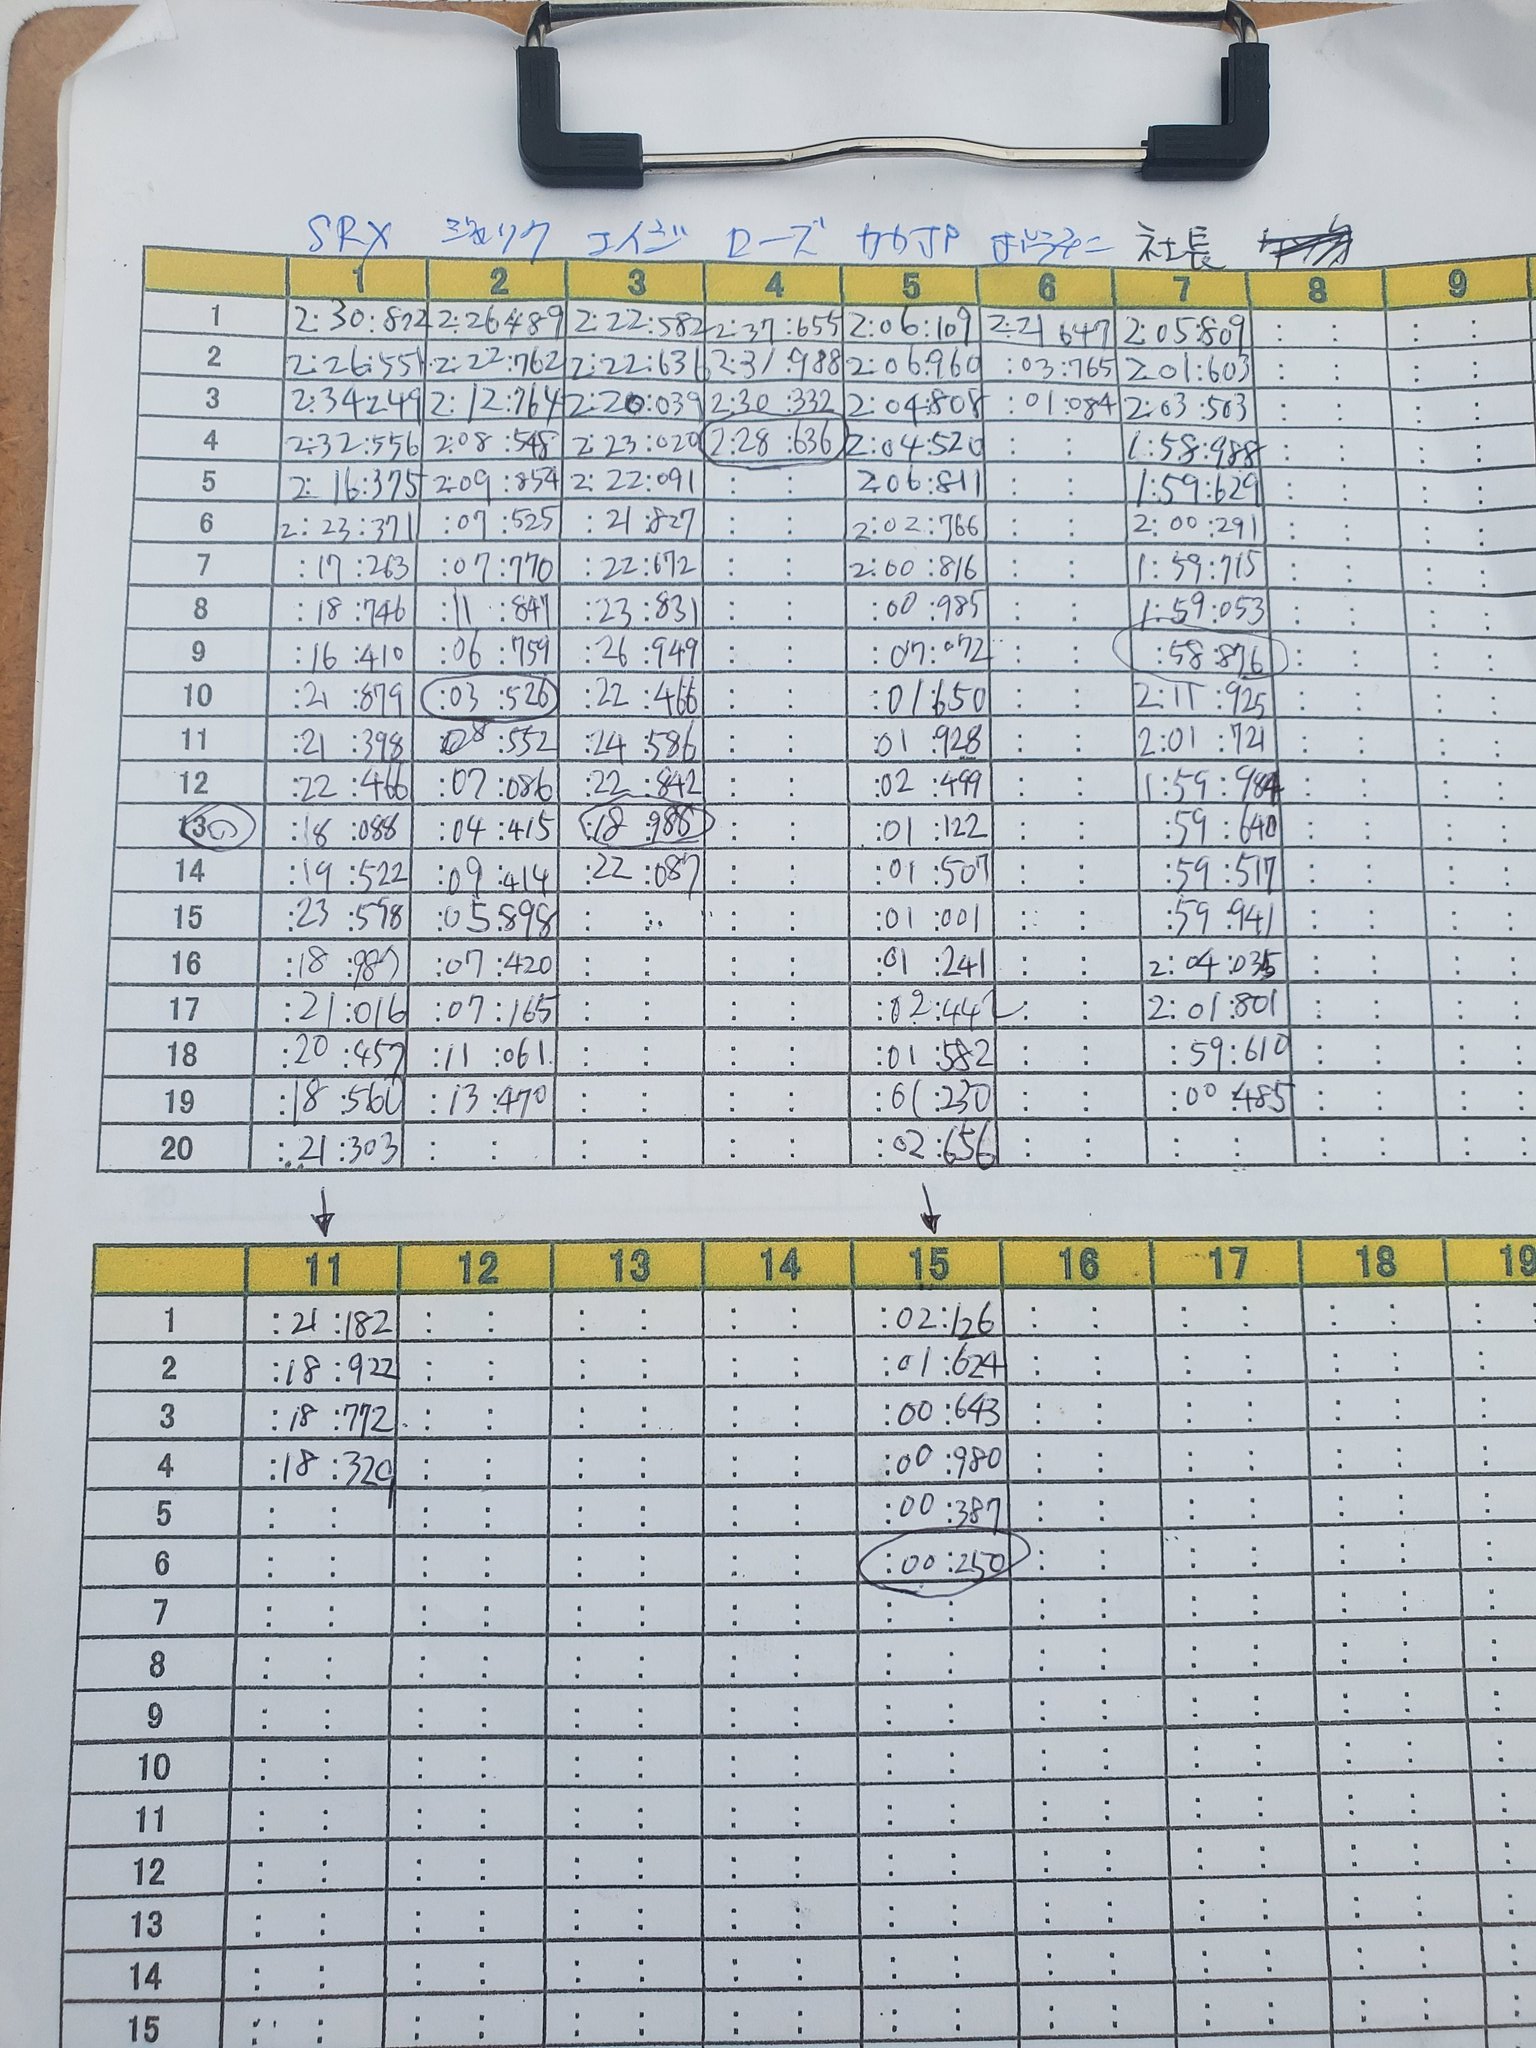 SRX ジェリク エイジ ローズ 社長
1 2 3 4 5 6 7 8 9
1 2:30:822 2:26489 2:22:582 2:37:655 2:06:109 2:21 647 2:05:809 : : : :
2 2:26:551 2:22:762 2:22:636 2:31:988 2:06:960 :03:765 2:01:603 : : : :
3 2:34249 2:12:764 2:20:039 2:30:332 2:04:808 :01:084 2:03:503 : : : :
4 2:32:556 2:08:548 2:23:020 2:28:636 2:04:520 : : 1:58:988 : : : :
5 2:16:375 2:09:854 2:22:091 : : 2:06:811 : : 1:59:629 : : : :
6 2:23:371 :07:525 :21:827 : : 2:02:766 : : 2:00:291 : : : :
7 :17:263 :07:770 :22:672 : : 2:00:816 : : 1:59:715 : : : :
8 :18:746 :11:847 :23:831 : : :00:985 : : 1:59:053 : : : :
9 :16:410 :06:759 :26:949 : : :07:072 : : :58:876 : : : :
10 :21:879 :03:526 :22:466 : : :01:650 : : 2:11:925 : : : :
11 :21:398 :08:552 :24:586 : : :01:928 : : 2:01:721 : : : :
12 :22:466 :07:086 :22:842 : : :02:499 : : 1:59:984 : : : :
13 :18:088 :04:415 :18:988 : : :01:122 : : :59:640 : : : :
14 :19:522 :09:414 :22:087 : : :01:507 : : :59:517 : : : :
15 :23:598 :05:898 : : : : :01:001 : : :59:941 : : : :
16 :18:987 :07:420 : : : : :01:241 : : 2:04:035 : : : :
17 :21:016 :07:165 : : : : :02:442 : : 2:01:801 : : : :
18 :20:457 :11:061 : : : : :01:582 : : :59:610 : : : :
19 :18:560 :13:470 : : : : :01:230 : : :00:485 : : : :
20 :21:303 : : : : : : :02:656 : : : : : : : :
↓ ↓
11 12 13 14 15 16 17 18 19
1 :21:182 : : : : : : :02:126 : : : : : : :
2 :18:922 : : : : : : :01:624 : : : : : : :
3 :18:772 : : : : : : :00:643 : : : : : : :
4 :18:329 : : : : : : :00:980 : : : : : : :
5 : : : : : : : : :00:387 : : : : : : :
6 : : : : : : : : :00:250 : : : : : : :
7 : : : : : : : : : : : : : : : : :
8 : : : : : : : : : : : : : : : : :
9 : : : : : : : : : : : : : : : : :
10 : : : : : : : : : : : : : : : : :
11 : : : : : : : : : : : : : : : : :
12 : : : : : : : : : : : : : : : : :
13 : : : : : : : : : : : : : : : : :
14 : : : : : : : : : : : : : : : : :
15 : : : : : : : : : : : : : : : : :